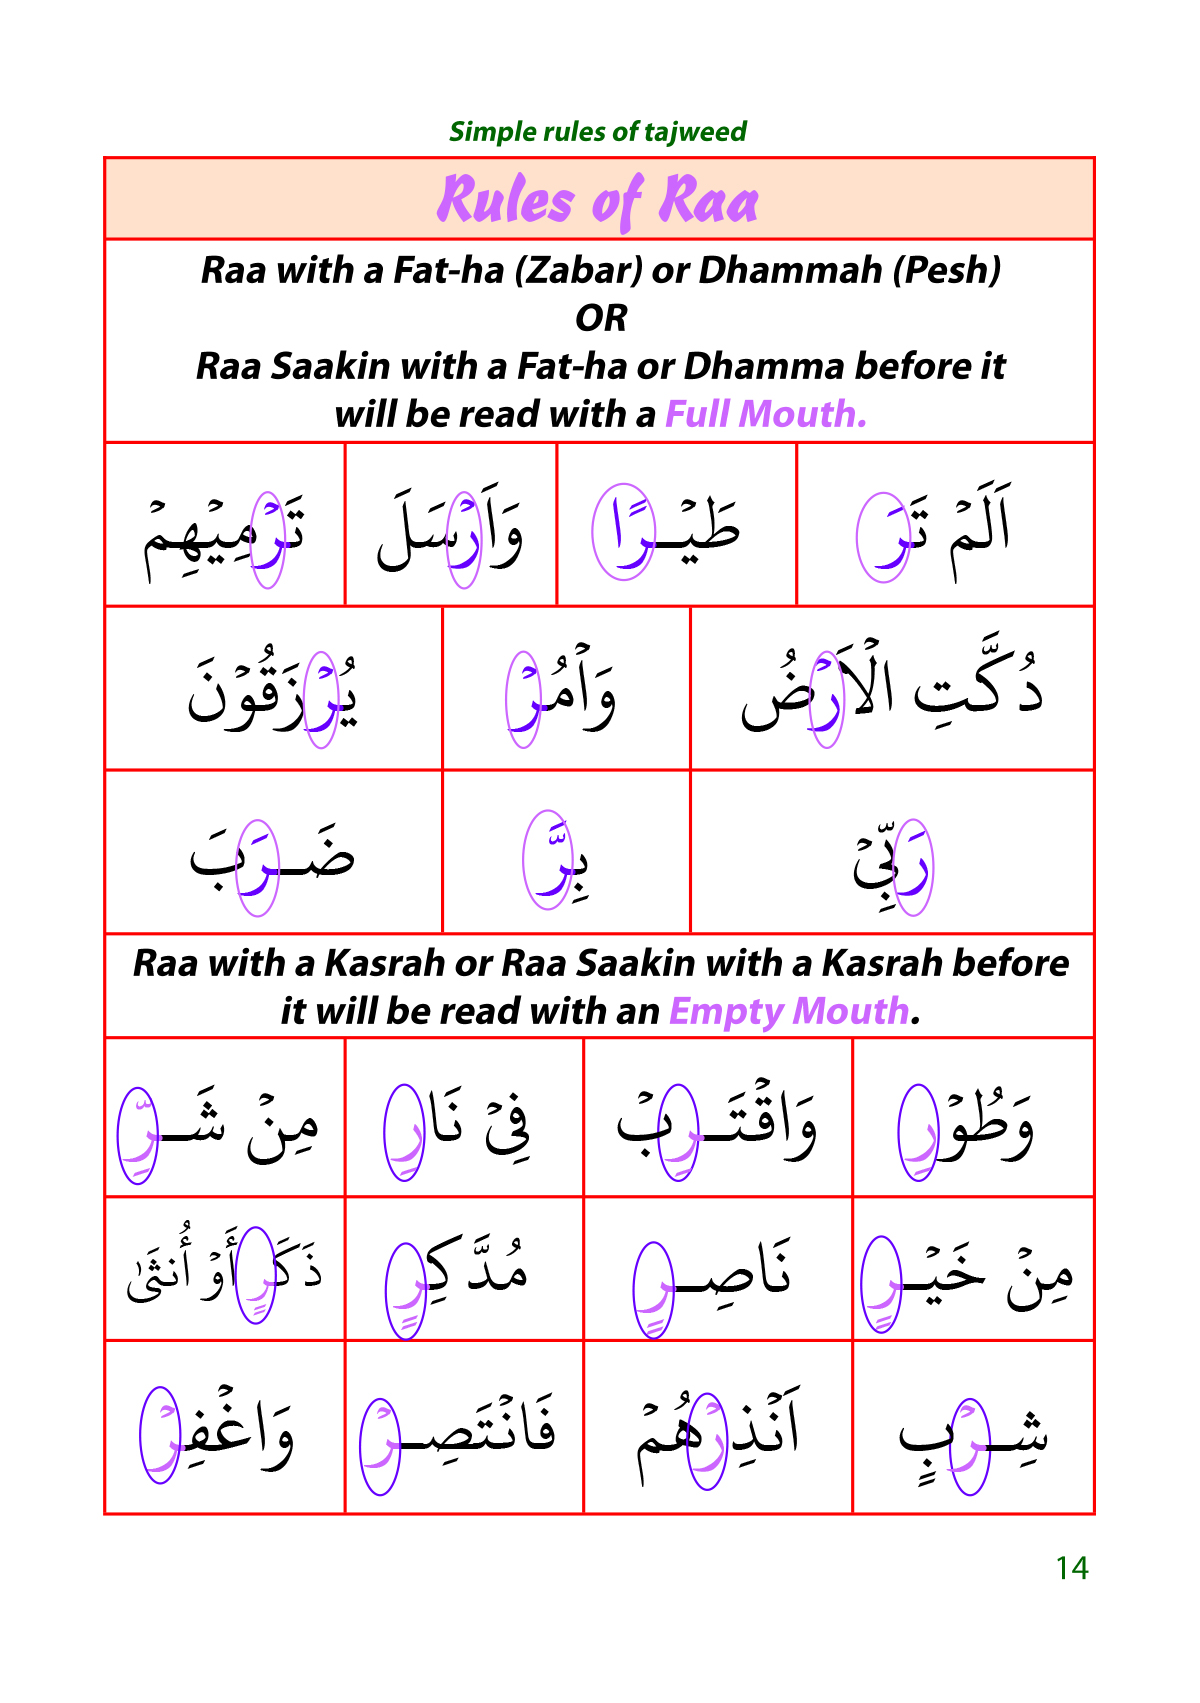 Simple rules of tajweed
Rules of Raa
Raa with a Fat-ha (Zabar) or Dhammah (Pesh)
OR
Raa Saakin with a Fat-ha or Dhamma before it
will be read with a Full Mouth.
اَلَمْ تَرَ طَيْرًا وَاَرْسَلَ تَرْمِيْهِمْ
دُكَّتِ الْاَرْضُ وَاْمُرْ يُرْزَقُوْنَ
رَبِّيْ بِرَّ ضَرَبَ
Raa with a Kasrah or Raa Saakin with a Kasrah before
it will be read with an Empty Mouth.
وَطُوْرِ وَاقْتَرِبْ فِيْ نَارِ مِنْ شَرِّ
مِنْ خَيْرٍ نَاصِرٍ مُدَّكِرٍ ذَكَرٍ أَوْ أُنثَىٰ
شِرْبٍ اَنْذِرْهُمْ فَانْتَصِرْ وَاغْفِرْ
14